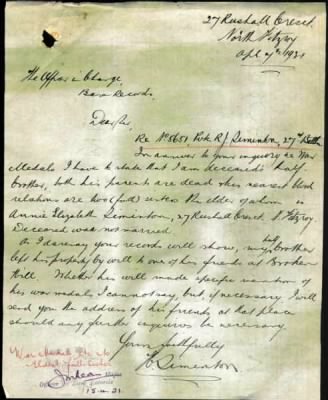 27 Rushall Cresct.
North Fitzroy
Apl 7th 1921
The Officer in Charge,
Base Records
Dear Sir,
Re No 5651 Pvte R. J. Sementon, 27th Battn
In answer to your enquiry re War
Medals I have to state that I am deceased's half
brother, both his parents are dead & his nearest blood
relations are two full sisters the elder of whom is
Annie Elizabeth Sementon, 27 Rushall Cresct. N. Fitzroy
Deceased was not married.
As I daresay your records will show, my half brother
left his property by will to one of his friends at Broken
Hill. Whether his will made specific mention of
his war medals I cannot say, but, if necessary I will
send you the address of his friends at that place
should any further enquiries be necessary.
Yours faithfully
Sementon
War Medals etc to
Eldest full sister
Major
Base Records
15.4.21.